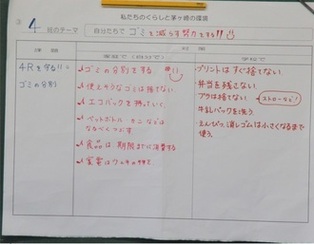 私たちのくらしと茅ヶ崎の環境
4 組のテーマ 自分たちで ゴミを減らす努力をする!!
4Rを守る!!
ゴミの分別
・ゴミの分別をする
・使えそうなゴミは捨てない
・エコバックを持っていく
・ペットボトル
・食品は期限までに消費する
・プリントはすぐ捨てない
・弁当を残さない
・プラは捨てない
ストローもだ!
・牛乳パックを洗う
・えんぴつ消しゴムは小さくなるまで
使う。